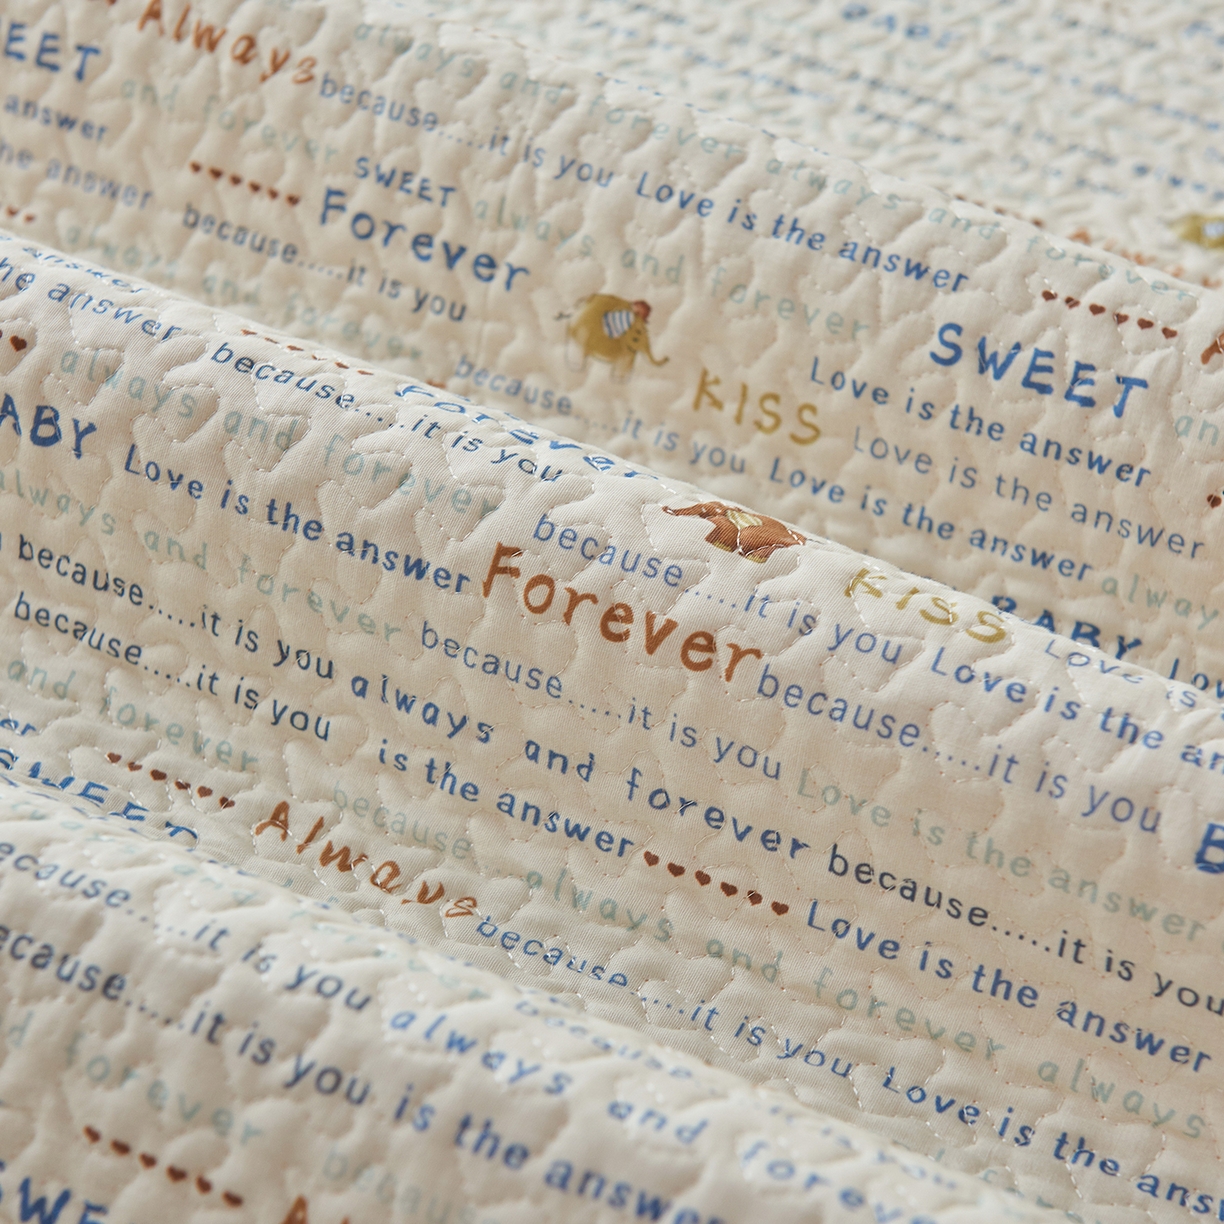 Always because.....it is you Love is the answer
always and forever always and forever
EET and forever SWEET always and forever
answer Forever SWEET
the answer because.....it is you Love is the answer
always and forever because.....it is you Love is the answer always
KISS Love is the answer
the answer because.....it is you KISS BABY Love
always and forever because.....it is you Love is the answer
ABY Love is the answer Forever because.....it is you
always and forever because.....it is you Love is the answer
because.....it is you always and forever because.....it is you
because.....it is you is the answer Love is the answer
and forever because always and forever always
SWEET Always because.....it is you Love is the answer
because.....it is you always and forever
because.....it is you is the answer
forever because